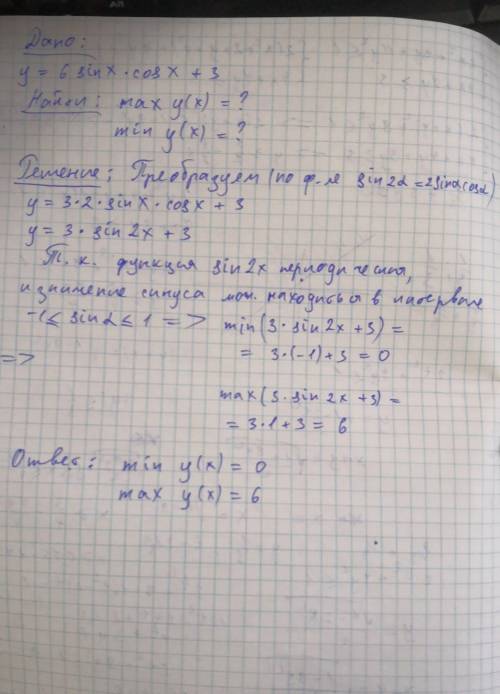 Дано:
y = 6 sinx · cosx + 3
Найти: max y(x) = ?
min y(x) = ?
Решение: Преобразуем (по ф-ле sin2α = 2sinαcosα)
y = 3·2·sinx·cosx + 3
y = 3·sin2x + 3
Т. к. функция sin2x периодическая,
и значение синуса мож. находиться в интервале
-1 ≤ sinα ≤ 1 => min(3·sin2x + 3) =
= 3·(-1)+3 = 0
=>
max(3·sin2x + 3) =
= 3·1+3 = 6
Ответ: min y(x) = 0
max y(x) = 6